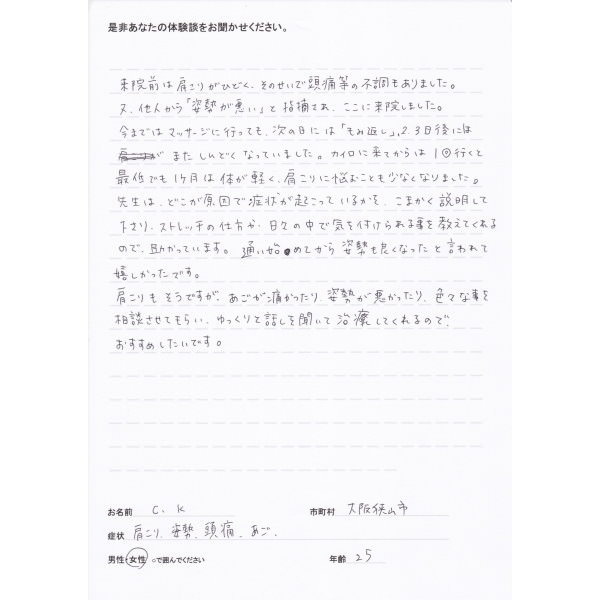 是非あなたの体験談をお聞かせください。
来院前は肩こりがひどく、そのせいで頭痛等の不調もありました。
又、他人から「姿勢が悪い」と指摘され、ここに来院しました。
今まではマッサージに行っても、次の日には「もみ返し」、2、3日後には
肩こりが またしんどくなっていました。カイロに来てからは1回行くと
最低でも1ヶ月は体が軽く、肩こりに悩むことも少なくなりました。
先生は、どこが原因で症状が起こっているかを、こまかく説明して
下さり、ストレッチの仕方や、日々の中で気を付けられる事を教えてくれる
ので、助かっています。通い始めてから姿勢も良くなったと言われて
嬉しかったです。
肩こりもそうですが、あごが痛かったり、姿勢が悪かったり、色々な事を
相談させてもらい、ゆっくりと話しを聞いて治療してくれるので、
おすすめしたいです。
お名前 C. K 市町村 大阪狭山市
症状 肩こり、姿勢、頭痛、あご、
男性・女性 ○で囲んでください 年齢 25